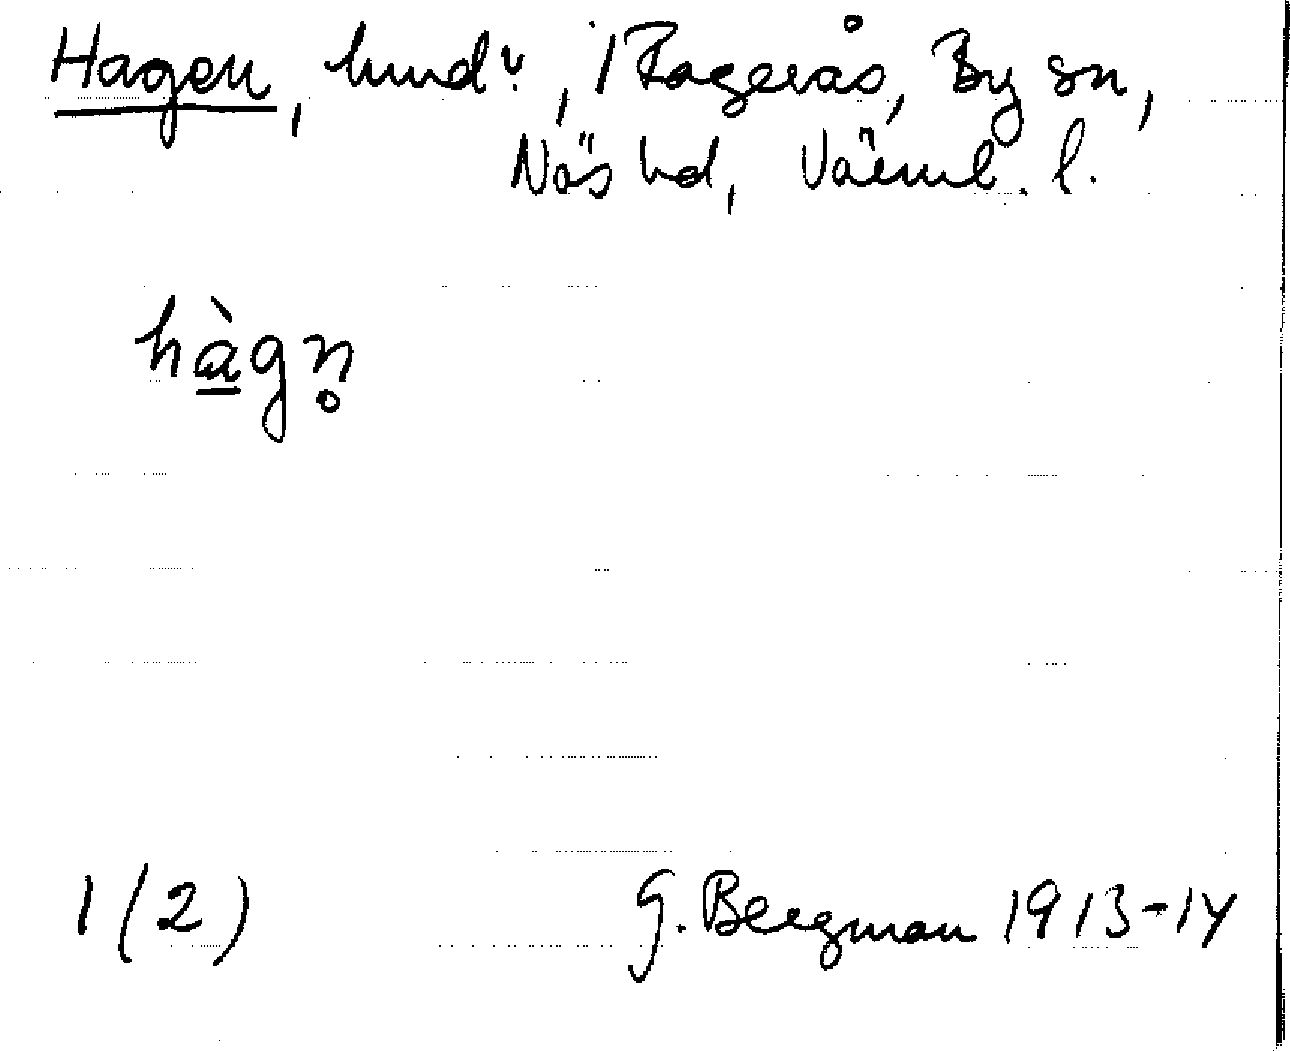 Hagen, i Ragerås, By sn,
Näs hd, Värml. l.
hà̱gn̥
1 (2) G. Bergman 1913-14